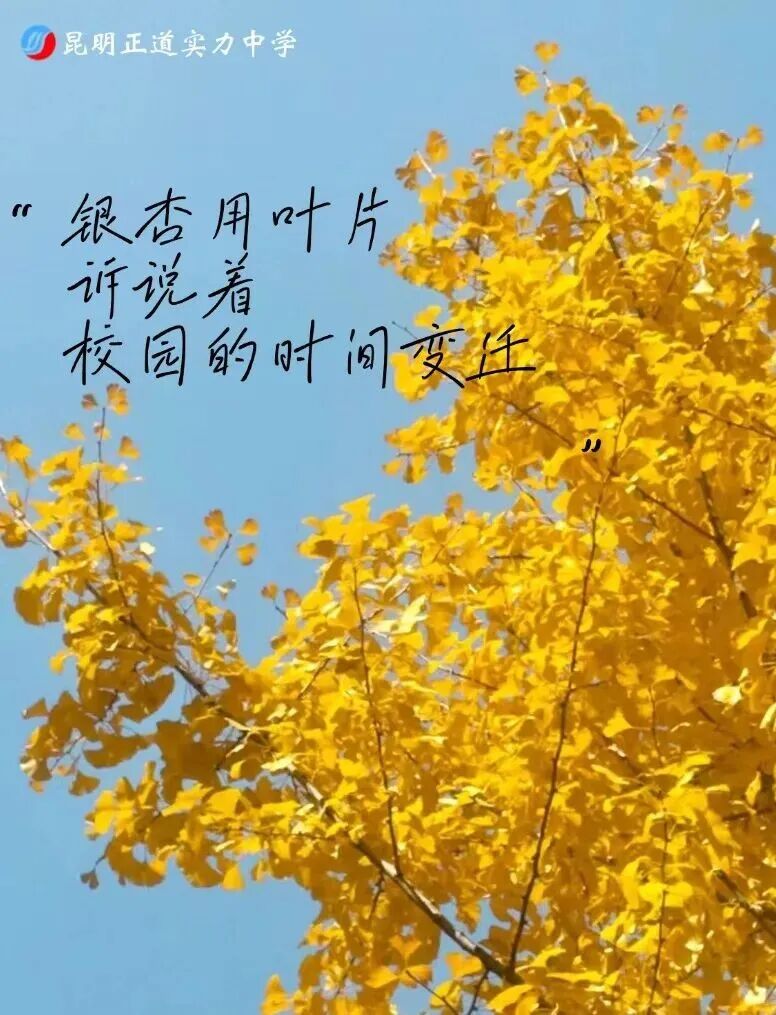 昆明正道实力中学
“银杏用叶片
诉说着
校园的时间变迁
”